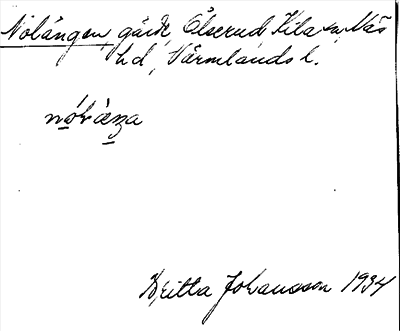 Nolängen, gärde, Ölserud Kila sn, Näs
hd, Värmlands l.
Britta Johansson 1934